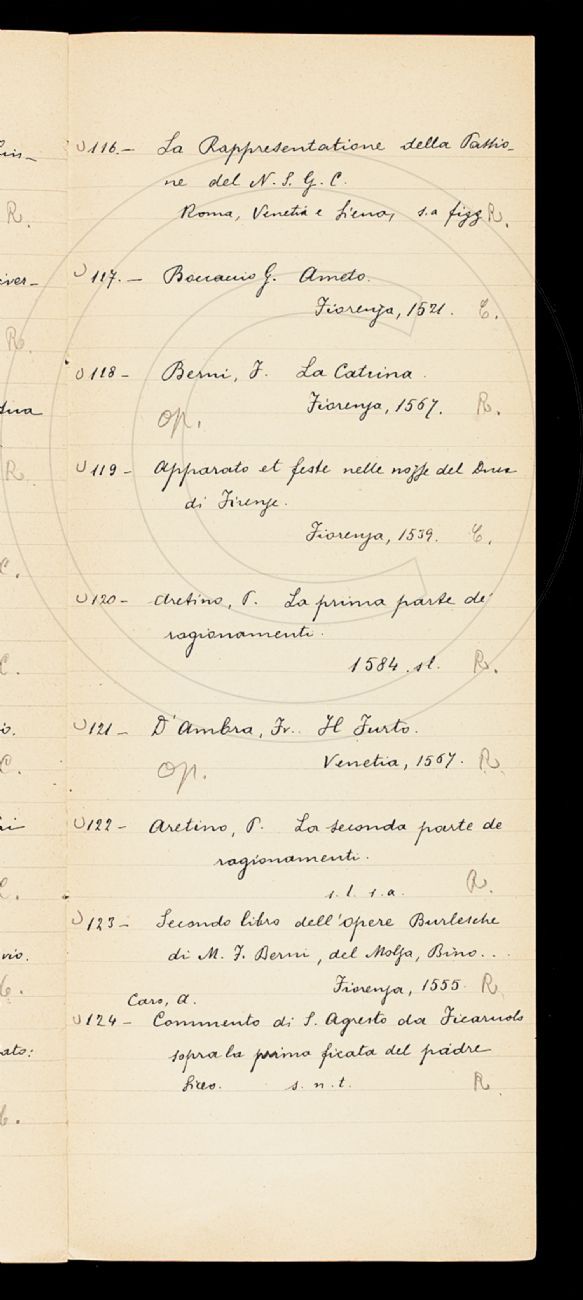 116.- La Rappresentatione della Passio-
ne del N. S. G. C.
Roma, Venetia e Siena, s.a figg R.
117.- Boccaccio G. Ameto.
Fiorenza, 1521. C.
118- Berni, F. La Catrina.
op. Fiorenza, 1567. R.
119- Apparato et feste nelle nozze del Duca
di Firenze.
Fiorenza, 1539. C.
120- Aretino, P. La prima parte de'
ragionamenti.
1584. sl. R.
121- D'Ambra, Fr. Il Furto.
op. Venetia, 1567. R.
122- Aretino, P. La seconda parte de
ragionamenti.
s. l. s. a. R.
123- Secondo libro dell'opere Burlesche
di M. F. Berni, del Molza, Bino...
Fiorenza, 1555. R
Caro, A.
124- Commento di S. Agresto da Ficaruolo
sopra la prima ficata del padre
Siceo. s. n. t. R